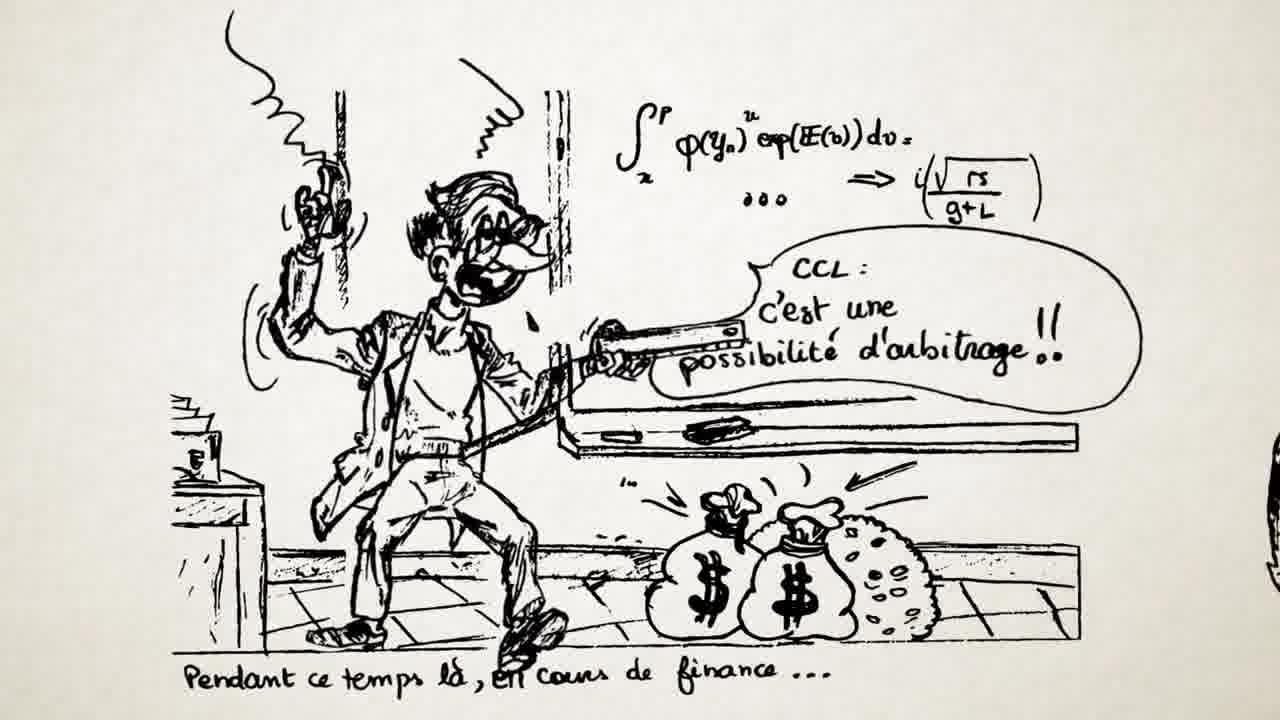 ∫ₓᴾ φ(yₙ)ᵘ exp(𝔼(v)) dv =
... ⇒ i(√rs / g+L)
CCL :
c'est une
possibilité d'arbitrage !!
$ $
Pendant ce temps là, en cours de finance ...